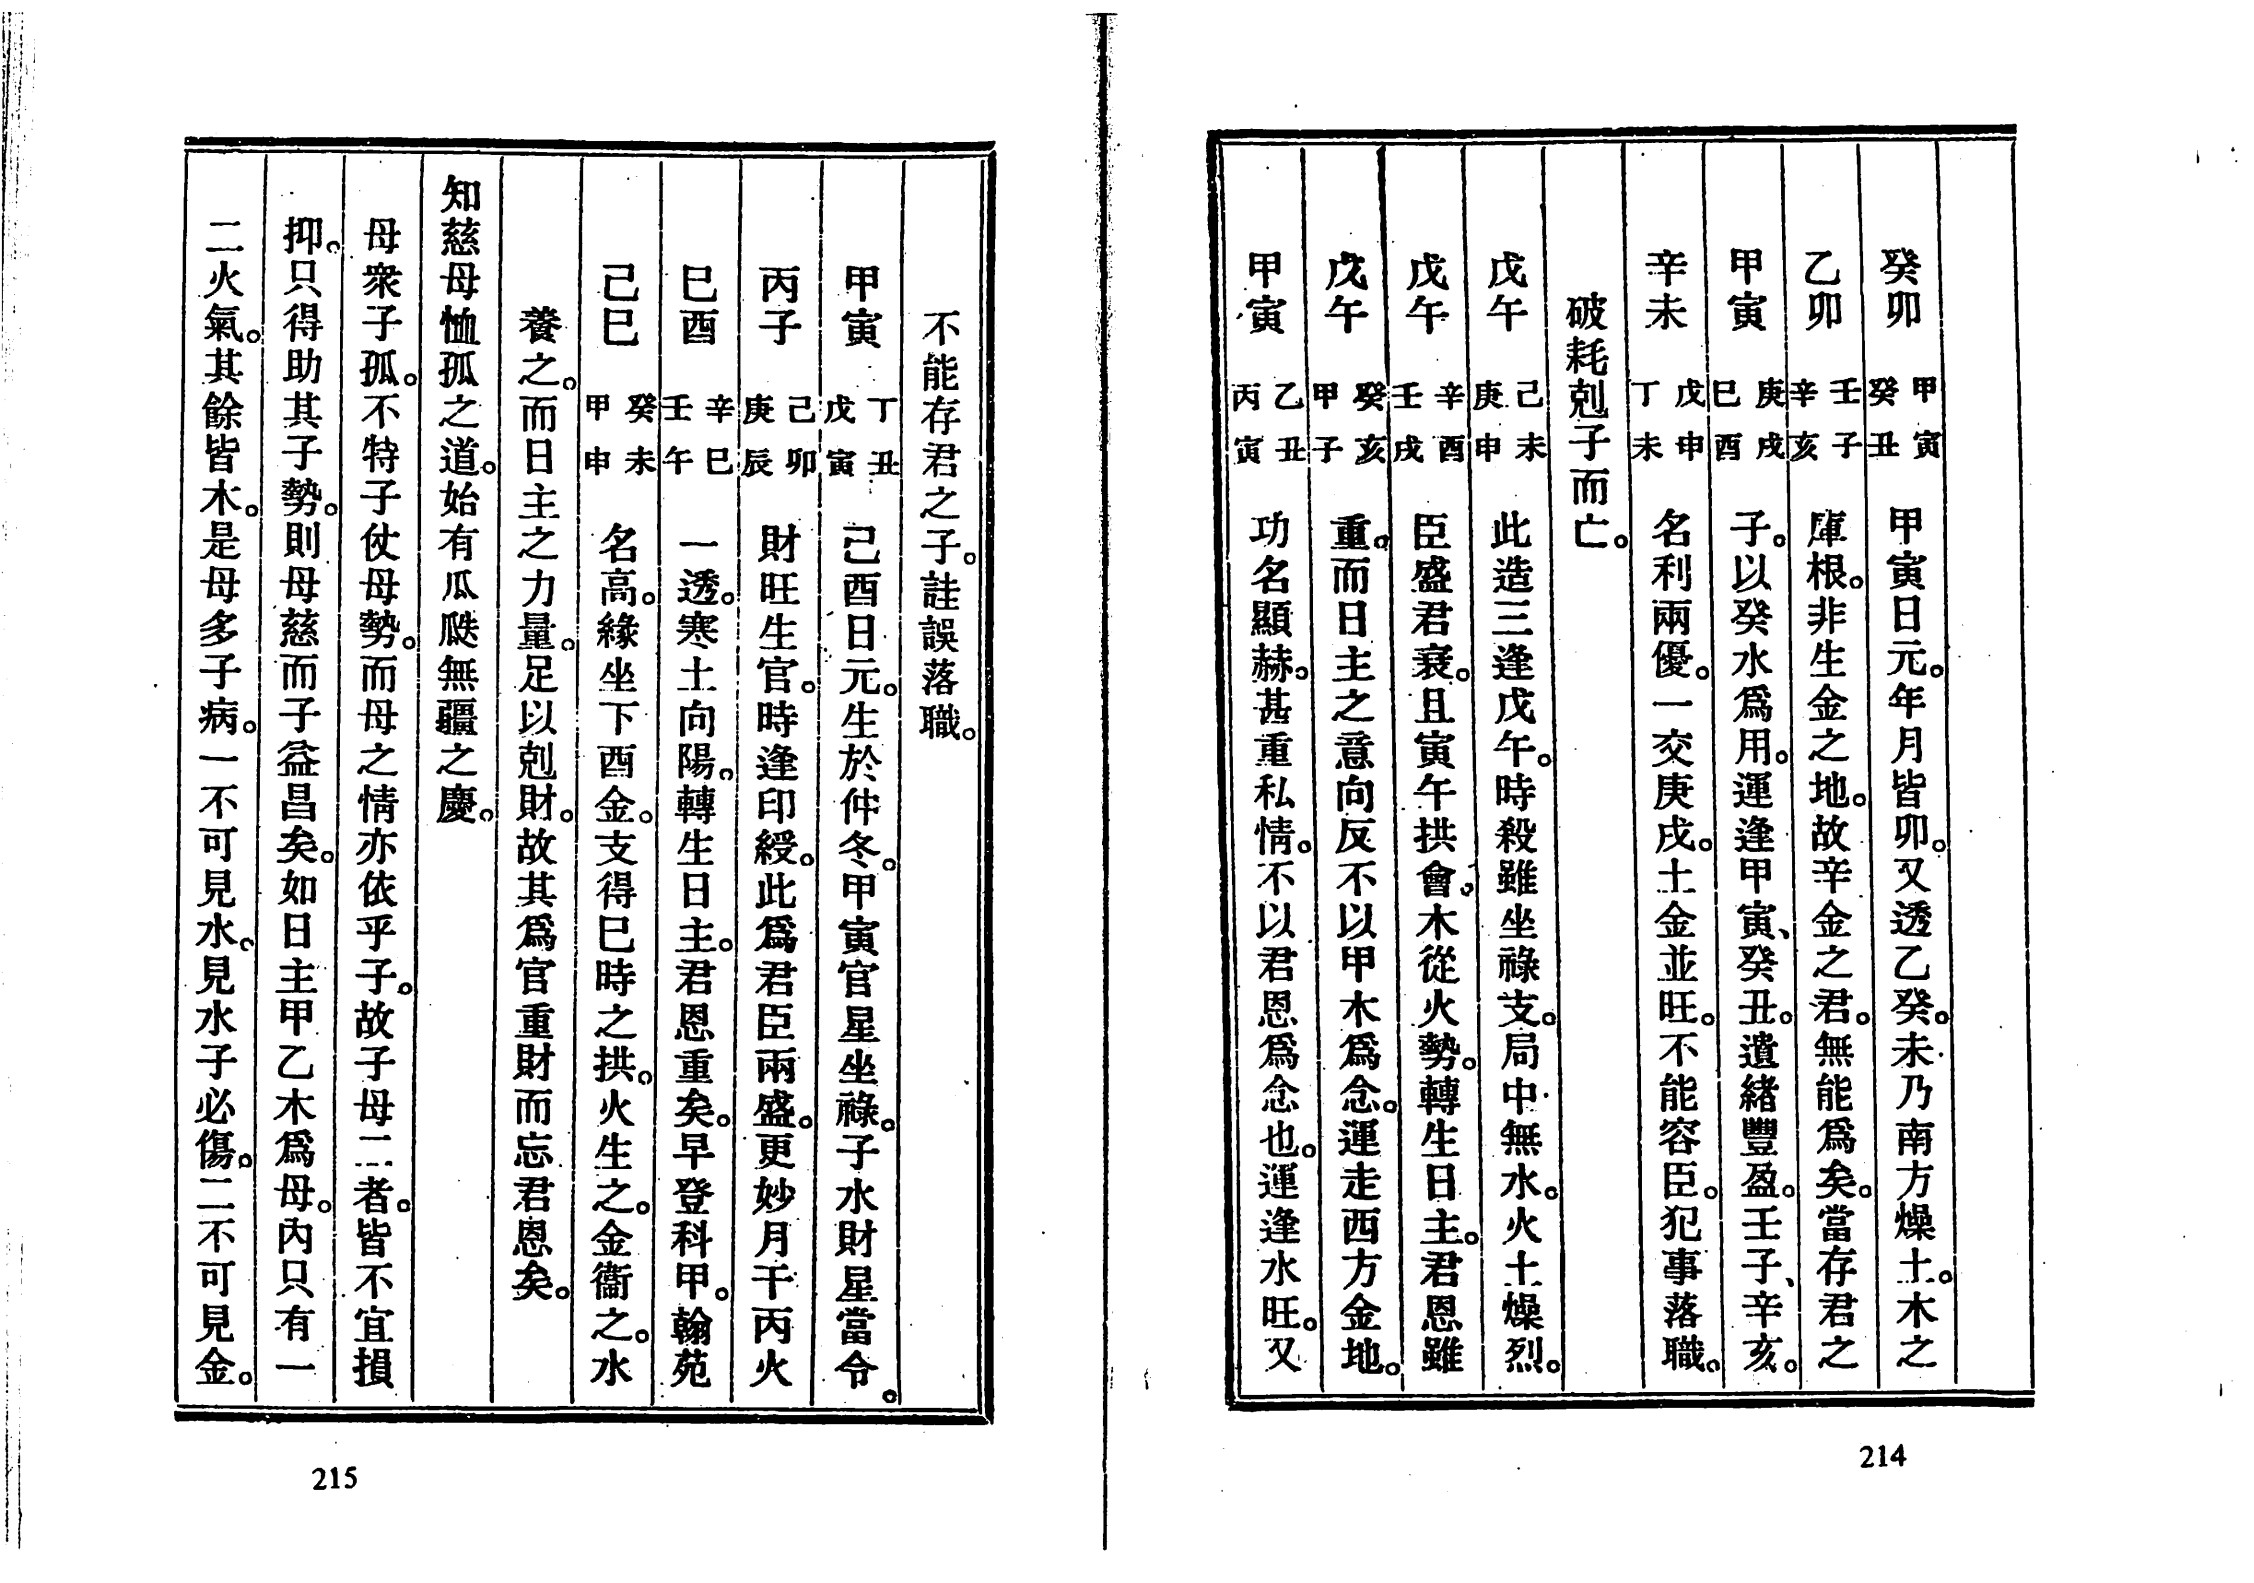 癸卯 甲寅 癸丑 甲寅日元。年月皆卯。又透乙癸。未乃南方燥土。木之
乙卯 壬子 辛亥 庫根。非生金之地。故辛金之君。無能爲矣。當存君之
甲寅 庚戌 巳酉 子。以癸水爲用。運逢甲寅、癸丑。遺緒豐盈。壬子、辛亥。
辛未 戊申 丁未 名利兩優。一交庚戌。土金並旺。不能容臣。犯事落職。
破耗剋子而亡。
戊午 己未 庚申 此造三逢戊午。時殺雖坐祿支。局中無水。火土燥烈。
戊午 辛酉 壬戌 臣盛君衰。且寅午拱會。木從火勢。轉生日主。君恩雖
戊午 癸亥 甲子 重。而日主之意向反不以甲木爲念。運走西方金地。
甲寅 乙丑 丙寅 功名顯赫。甚重私情。不以君恩爲念也。運逢水旺。又
214
不能存君之子。詿誤落職。
甲寅 丁丑 戊寅 己酉日元。生於仲冬。甲寅官星坐祿。子水財星當令。
丙子 己卯 庚辰 財旺生官。時逢印綬。此爲君臣兩盛。更妙月干丙火
巳酉 辛巳 壬午 一透。寒土向陽。轉生日主。君恩重矣。早登科甲。翰苑
己巳 癸未 甲申 名高。緣坐下酉金。支得巳時之拱。火生之。金衞之。水
養之。而日主之力量。足以剋財。故其爲官重財而忘君恩矣。
知慈母恤孤之道。始有瓜瓞無疆之慶。
母衆子孤。不特子仗母勢。而母之情亦依乎子。故子母二者。皆不宜損
抑。只得助其子勢。則母慈而子益昌矣。如日主甲乙木爲母。內只有一
二火氣。其餘皆木。是母多子病。一不可見水。見水子必傷。二不可見金。
215